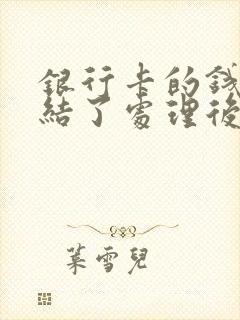 銀行卡的錢
結了處理後
葉雪兒